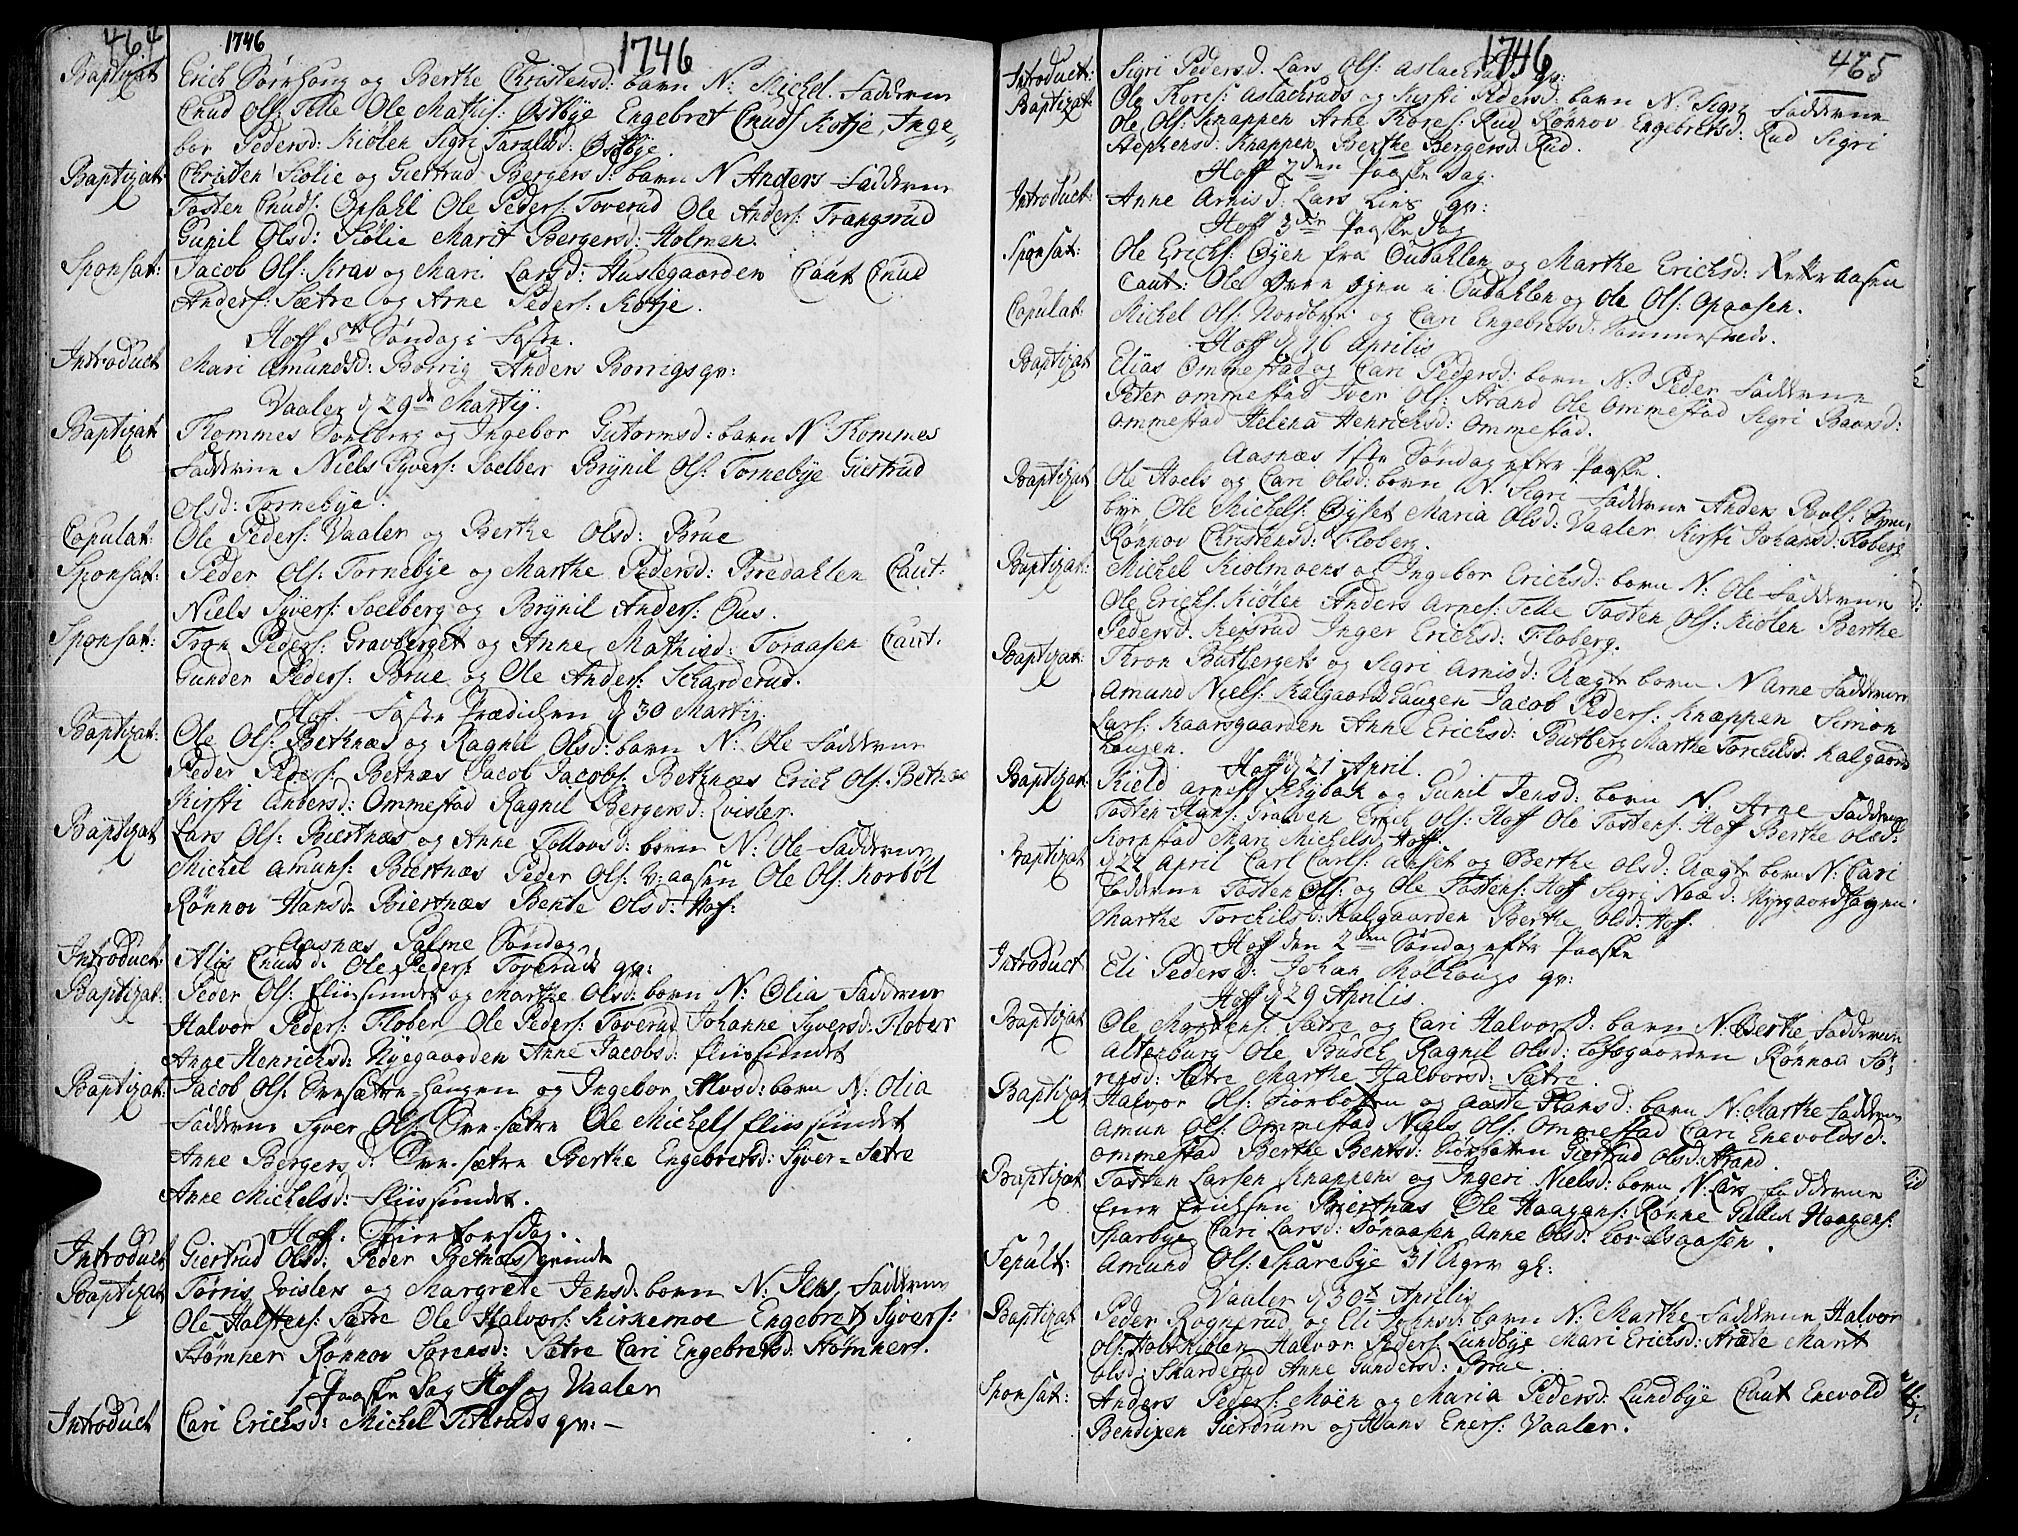 464 1746 1746
Baptizat Erich Sørhaug og Berthe Christensd: barn N: Michel. Faddrene
Cnud Ols: Telle Ole Mathis: Østbye Engebret Cnuds: Kotje, Inge-
bor Pedersd: Kiølen Sigri Taralsd: Østbye.
Baptizat Christen Kiølie og Giertrud Bergersd: barn N Anders Faddrene
Tosten Cnuds: Opsahl Ole Peders: Toverud Ole Anders: Trangsrud
Gunil Olsd: Kiølie Marit Bergersd: Holmen.
Sponsat: Jacob Ols: Krav og Mari Larsd: Huslegaarden Caut Cnud
Anders: Sætre og Arne Peders: Kotje.
Hoff 5te Søndag i Faste.
Introduct Mari Amundsd: Borrig Anders Borrigs qv:
Vaaler d 29de Martij.
Baptizat Thommes Soelberg og Ingebor Gutormsd: barn N Thommes
Faddrene Niels Syvers: Soelber Brynil Ols: Tornebye Giertrud
Olsd: Tornebye.
Copulat: Ole Peders: Vaaler og Berthe Olsd: Brue
Sponsat: Peder Ols: Tornebye og Marthe Pedersd: Bredahlen Caut:
Niels Syvers: Soelberg og Brynil Anders: Ous.
Sponsat: Tron Peders: Gravberget og Anne Mathisd: Toraasen Caut:
Gunder Peders: Brue og Ole Anders: Skarderud.
Hof. Faste Prædichen d 30 Martij.
Baptizat: Ole Ols: Bethnæs og Ragnil Olsd: barn N: Ole Faddrene
Peder Peders: Betnæs Jacob Jacobs: Bethnæs Erich Ols: Bethnæs
Kirsti Andersd: Ommestad Ragnil Bergersd: Qvisler.
Baptizat Lars Ols: Biertnæs og Anne Tollovsd: barn N: Ole Faddrene
Michel Amuns: Biertnæs Peder Ols: aasen Ole Ols: Korbøl
Rønnov Hansd: Biertnæs Bente Olsd: Hof:
Aasnæs Palme Søndag.
Introduct: Alis Cnudsd: Ole Peders: Toveruds qv:
Baptizat: Peder Ols: Fliissundet og Marthe Olsd: barn N: Olia Faddrene
Halvor Peders: Flober Ole Peders: Toverud Johanne Syversd: Flober
Anne Henrichsd: Nyegaarden Anne Jacobsd: Fliissundet
Baptizat: Jacob Ols: Ovresætre-haugen og Ingebor Alvsd: barn N: Olia
Faddrene Syver Ols: Ovre-sætre Ole Michels: Fliissundet
Anne Bergersd: Ovre-sætre Berthe Engebretsd: Syver-Sætre
Anne Michelsd: Fliissundet.
Hoff. Skiertorsdag.
Introduct Giertrud Olsd: Peder Bethnæs qvinde
Baptizat Tørris Qvisler og Margrete Jensd: barn N: Jens, Faddrene
Ole Halstens: Sætre Ole Halvors: Kirkemoe Engebret Syvers:
Stømner Rønnov Sørensd: Sætre Cari Engebretsd: Stømner.
1. Paaske Dag Hof og Vaaler
Introduct Cari Erichsd: Michel Tiseruds qv:—
1746 465
Introduct: Sigri Pedersd. Lars Ols: Aslachruds qv:
Baptizat: Ole Kores: Aslachruds og Kirsti Pedersd: barn N: Sigri Faddrene
Ole Ols: Knappen Arne Kores: Rud Rønnov Engebretsd: Rud Sigri
Stephensd: Knappen Berthe Bergersd: Rud.
Hoff 2den Paaske Dag.
Introduct: Anne Arnisd: Lars Lies qv:
Hoff 3die Paaske Dag
Sponsat: Ole Erichs: Øyen fra Oudahlen og Marthe Erichsd: aasen
Caut: Ole Øyen i Oudahlen og Ole Ols: Opaasen.
Copulat: Michel Ols: Nordbye og Cari Engebretsd: Sommerstad.
Hoff d 16 Aprilis
Baptizat Elias Ommestad og Cari Pedersd: barn N: Peder Faddrene
Peter Ommestad Iver Ols: Strand Ole Ommestad Sigri Baarsd:
Ommestad Helena Henrichsd: Ommestad.
Aasnæs 1ste Søndag efter Paaske.
Baptizat Ole Hoels og Cari Olsd: barn N: Sigri Faddrene Anders Pouls:
bye Ole Michels: Øyset Maria Olsd: Vaaler Kirsti Johansd: Floberg
Rønnov Christensd: Floberg.
Baptizat: Michel Kiølmoens og Ingebor Erichsd: barn N: Ole Faddrene
Ole Erichs: Kiølen Anders Arnes: Telle Tosten Ols: Kiølen Berthe
Pedersd: Keisrud Inger Erichsd: Floberg.
Baptizat: Thron Butbergets og Sigri Arnisd: Uægte barn N Arne Faddrene
Amund Niels: Kalgaardshaugen Jacob Peders: Knappen Simon
Lars: Kaarsgaarden Anne Erichsd: Butberg Marthe Torchilsd: Kalgaards
haugen.
Hoff d 21 April.
Baptizat: Kield Arnes: Skybak og Gunil Jensd: barn N: Arne Faddrene
Tosten Hans: Graven Erich Ols: Hoff Ole Tostens: Hoff Berthe Olsd:
Kornstad Mari Michelsd: Hoff.
Baptizat d 22 April Carl Carls: Anset og Berthe Olsd: Uægte barn N: Cari
Faddrene Tosten Ols: og Ole Tostens: Hoff Sigri Naæd: Nyegaardhagen.
Marthe Torchilsd: Kalgaarden Berthe Olsd: Hof.
Hoff den 2den Søndag efter Paaske
Introduct Eli Pedersd: Johan Mølhougs qv:
Hoff d 29 Aprilis.
Baptizat Ole Mortens: Sætre og Cari Halvorsd: barn N: Berthe Faddrene
Altenburg Ole Busch Ragnil Olsd: Lofsgaarden Rønnou Sø-
rensd: Sætre Marthe Halvorsd: Sætre.
Baptizat Halvor Ols: Siorbotten og Aaste Hansd: barn N: Marthe Faddrene
Amun Ols: Ommestad Niels Ols: Ommestad Cari Enevoldsd.
Ommestad Berthe Bentsd: Siorboten Giertrud Olsd: Strand.
Baptizat Tosten Larsen Knappens og Ingeri Nielsd: barn N: Lars Faddrene
Ener Erichsen Biertnæs Ole Haagens: Rønne Gulich Haagens:
Sparbye Cari Larsd: Sønaasen Anne Olsd: Lovdsaasen.
Sepult: Amund Ols: Sparebye 31 Uger gl:
Vaaler d 30t Aprilis
Baptizat Peder Rognerud og Eli Johnsd: barn N: Marthe Faddrene Halvor
Ols: Holt Kiølen Halvor Peders: Lundbye Mari Erichsd: Stræde Marit
Olsd: Skarderud Anne Gundersd: Brue.
Sponsat: Anders Peders: Moen og Maria Pedersd: Lundbye Caut Enevold
Bendixen Gierdrum og Hans Eners: Vaaler.